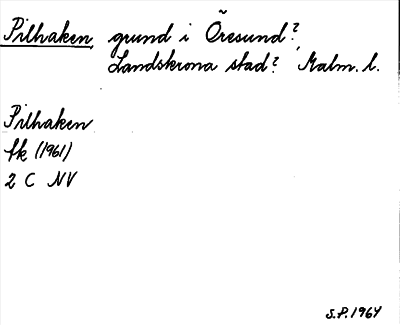 Pilhaken, grund i Öresund?,
Landskrona stad? Malm. l.
Pilhaken
fk (1961)
2 C NV
S.P. 1964